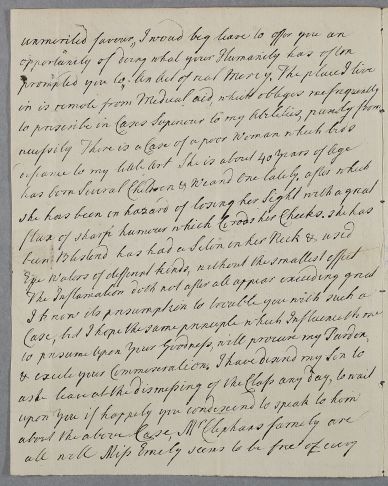 unmerited favour, I woud beg leave to offer you an
oppertunity of doing what your Humanity has often
prompted you to. An act of real Mercy. The place I live
in is remote from Medical aid, which obleges me frequently
to prescribe in Cases Superiour to my Abilities, purely from
necessity There is a Case of a poor Woman which bids
defiance to my little Art She is about 40 Years of Age
has born Several Children & Weand One lately, after which
she has been in hazard of losing her Sight with a great
flux of sharp humour which Erodes her Cheeks. she has
been Blisterd has had a Seton in her Neck & used
Eye Waters of different kinds, without the smallest effect
The Inflamation doth not after all appear exceeding great
I know its presumption to trouble you with such a
Case, but I hope the same principle which Influenceth me
to presume upon Your Goodness, will procure my Pardon,
& excite your Commiseration, I have desired my Son to
ask leave at the dismissing of the Class any Day, to wait
upon You if happely you condescend to speak to him
about the above Case, Mr Clephans family are
all well Miss Emely seems to be free of every